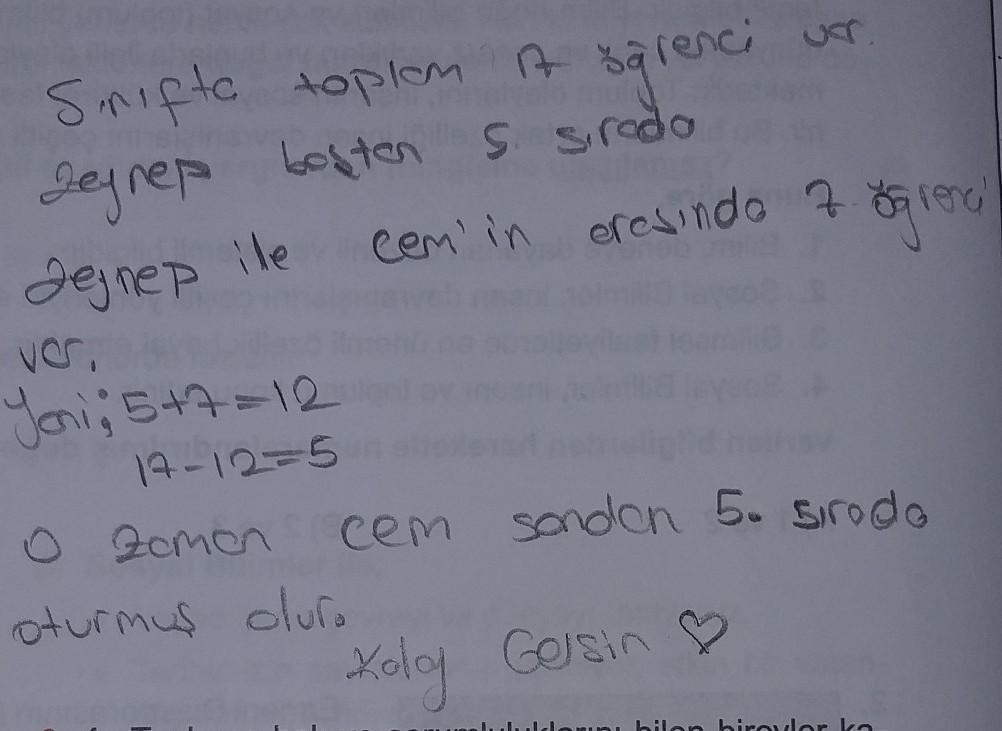 Sınıfta toplam 17 öğrenci var.
Zeynep baştan 5. sırada
Zeynep ile Cem'in arasında 7 öğrenci
var.
Yani; 5+7=12
17-12=5
O zaman Cem sondan 5. sırada
oturmuş olur.
Kolay Gelsin ♡